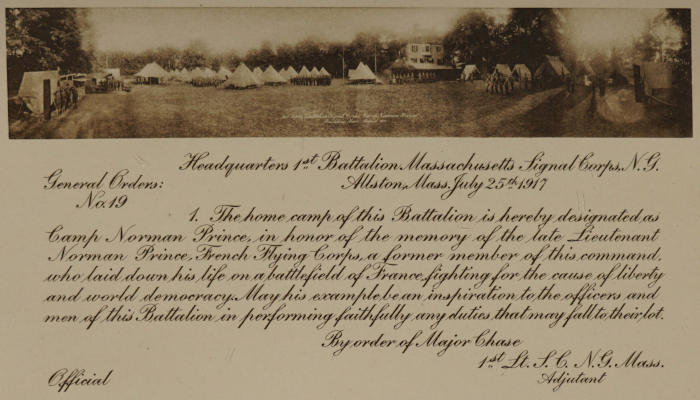 Headquarters 1st Battalion Massachusetts Signal Corps, N.G.
General Orders: Allston, Mass. July 25th 1917
No. 19
1. The home camp of this Battalion is hereby designated as
Camp Norman Prince, in honor of the memory of the late Lieutenant
Norman Prince, French Flying Corps, a former member of this command,
who laid down his life on a battlefield of France, fighting for the cause of liberty
and world democracy. May his example be an inspiration to the officers and
men of this Battalion in performing faithfully any duties that may fall to their lot.
By order of Major Chase
1st Lt. S. C. N.G. Mass.
Official Adjutant